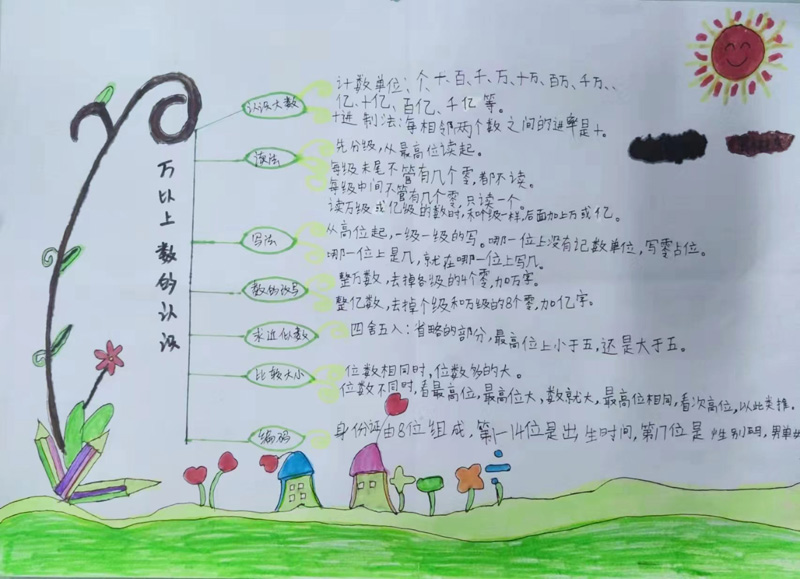 万以上数的认识
认识大数
计数单位:个、十、百、千、万、十万、百万、千万、
亿、十亿、百亿、千亿等。
十进制法:每相邻两个数之间的进率是十。
读法
先分级,从最高位读起。
每级末尾不管有几个零,都不读。
每级中间不管有几个零,只读一个。
读万级或亿级的数时,和个级一样,后面加上万或亿。
写法
从高位起,一级一级的写。哪一位上没有记数单位,写零占位。
哪一位上是几,就在哪一位上写几。
数的改写
整万数,去掉各级的4个零,加万字。
整亿数,去掉个级和万级的8个零,加亿字。
求近似数
四舍五入:省略的部分,最高位上小于五,还是大于五。
比较大小
位数相同时,位数多的大。
位数不同时,看最高位,最高位大,数就大,最高位相同,看次高位,以此类推。
编码
身份证由8位组成,第1-14位是出生时间,第17位是性别码,男单